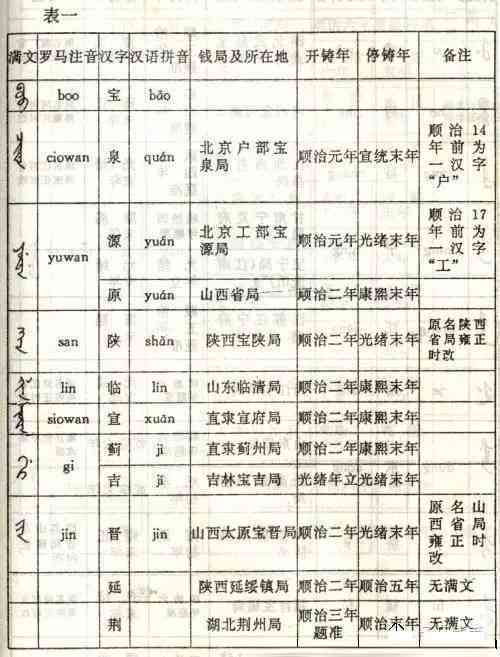 表一
满文 罗马注音 汉字 汉语拼音 钱局及所在地 开铸年 停铸年 备注
boo 宝 bǎo
ciowan 泉 quán 北京户部宝泉局 顺治元年 宣统末年 顺治14年前为一汉字“户”
yuwan 源 yuán 北京工部宝源局 顺治元年 光绪末年 顺治17年前为一汉字“工”
原 yuán 山西省局 顺治二年 康熙末年
san 陕 shǎn 陕西宝陕局 顺治二年 光绪末年 原名陕西省局雍正时改
lin 临 lín 山东临清局 顺治二年 康熙末年
siowan 宣 xuān 直隶宣府局 顺治二年 康熙末年
gi 蓟 jì 直隶蓟州局 顺治二年 康熙末年
吉 jí 吉林宝吉局 光绪年立 光绪末年
jin 晋 jìn 山西太原宝晋局 顺治二年 光绪末年 原名山西省局雍正时改
延 陕西延绥镇局 顺治二年 顺治五年 无满文
荆 湖北荆州局 顺治三年题准 顺治末年 无满文